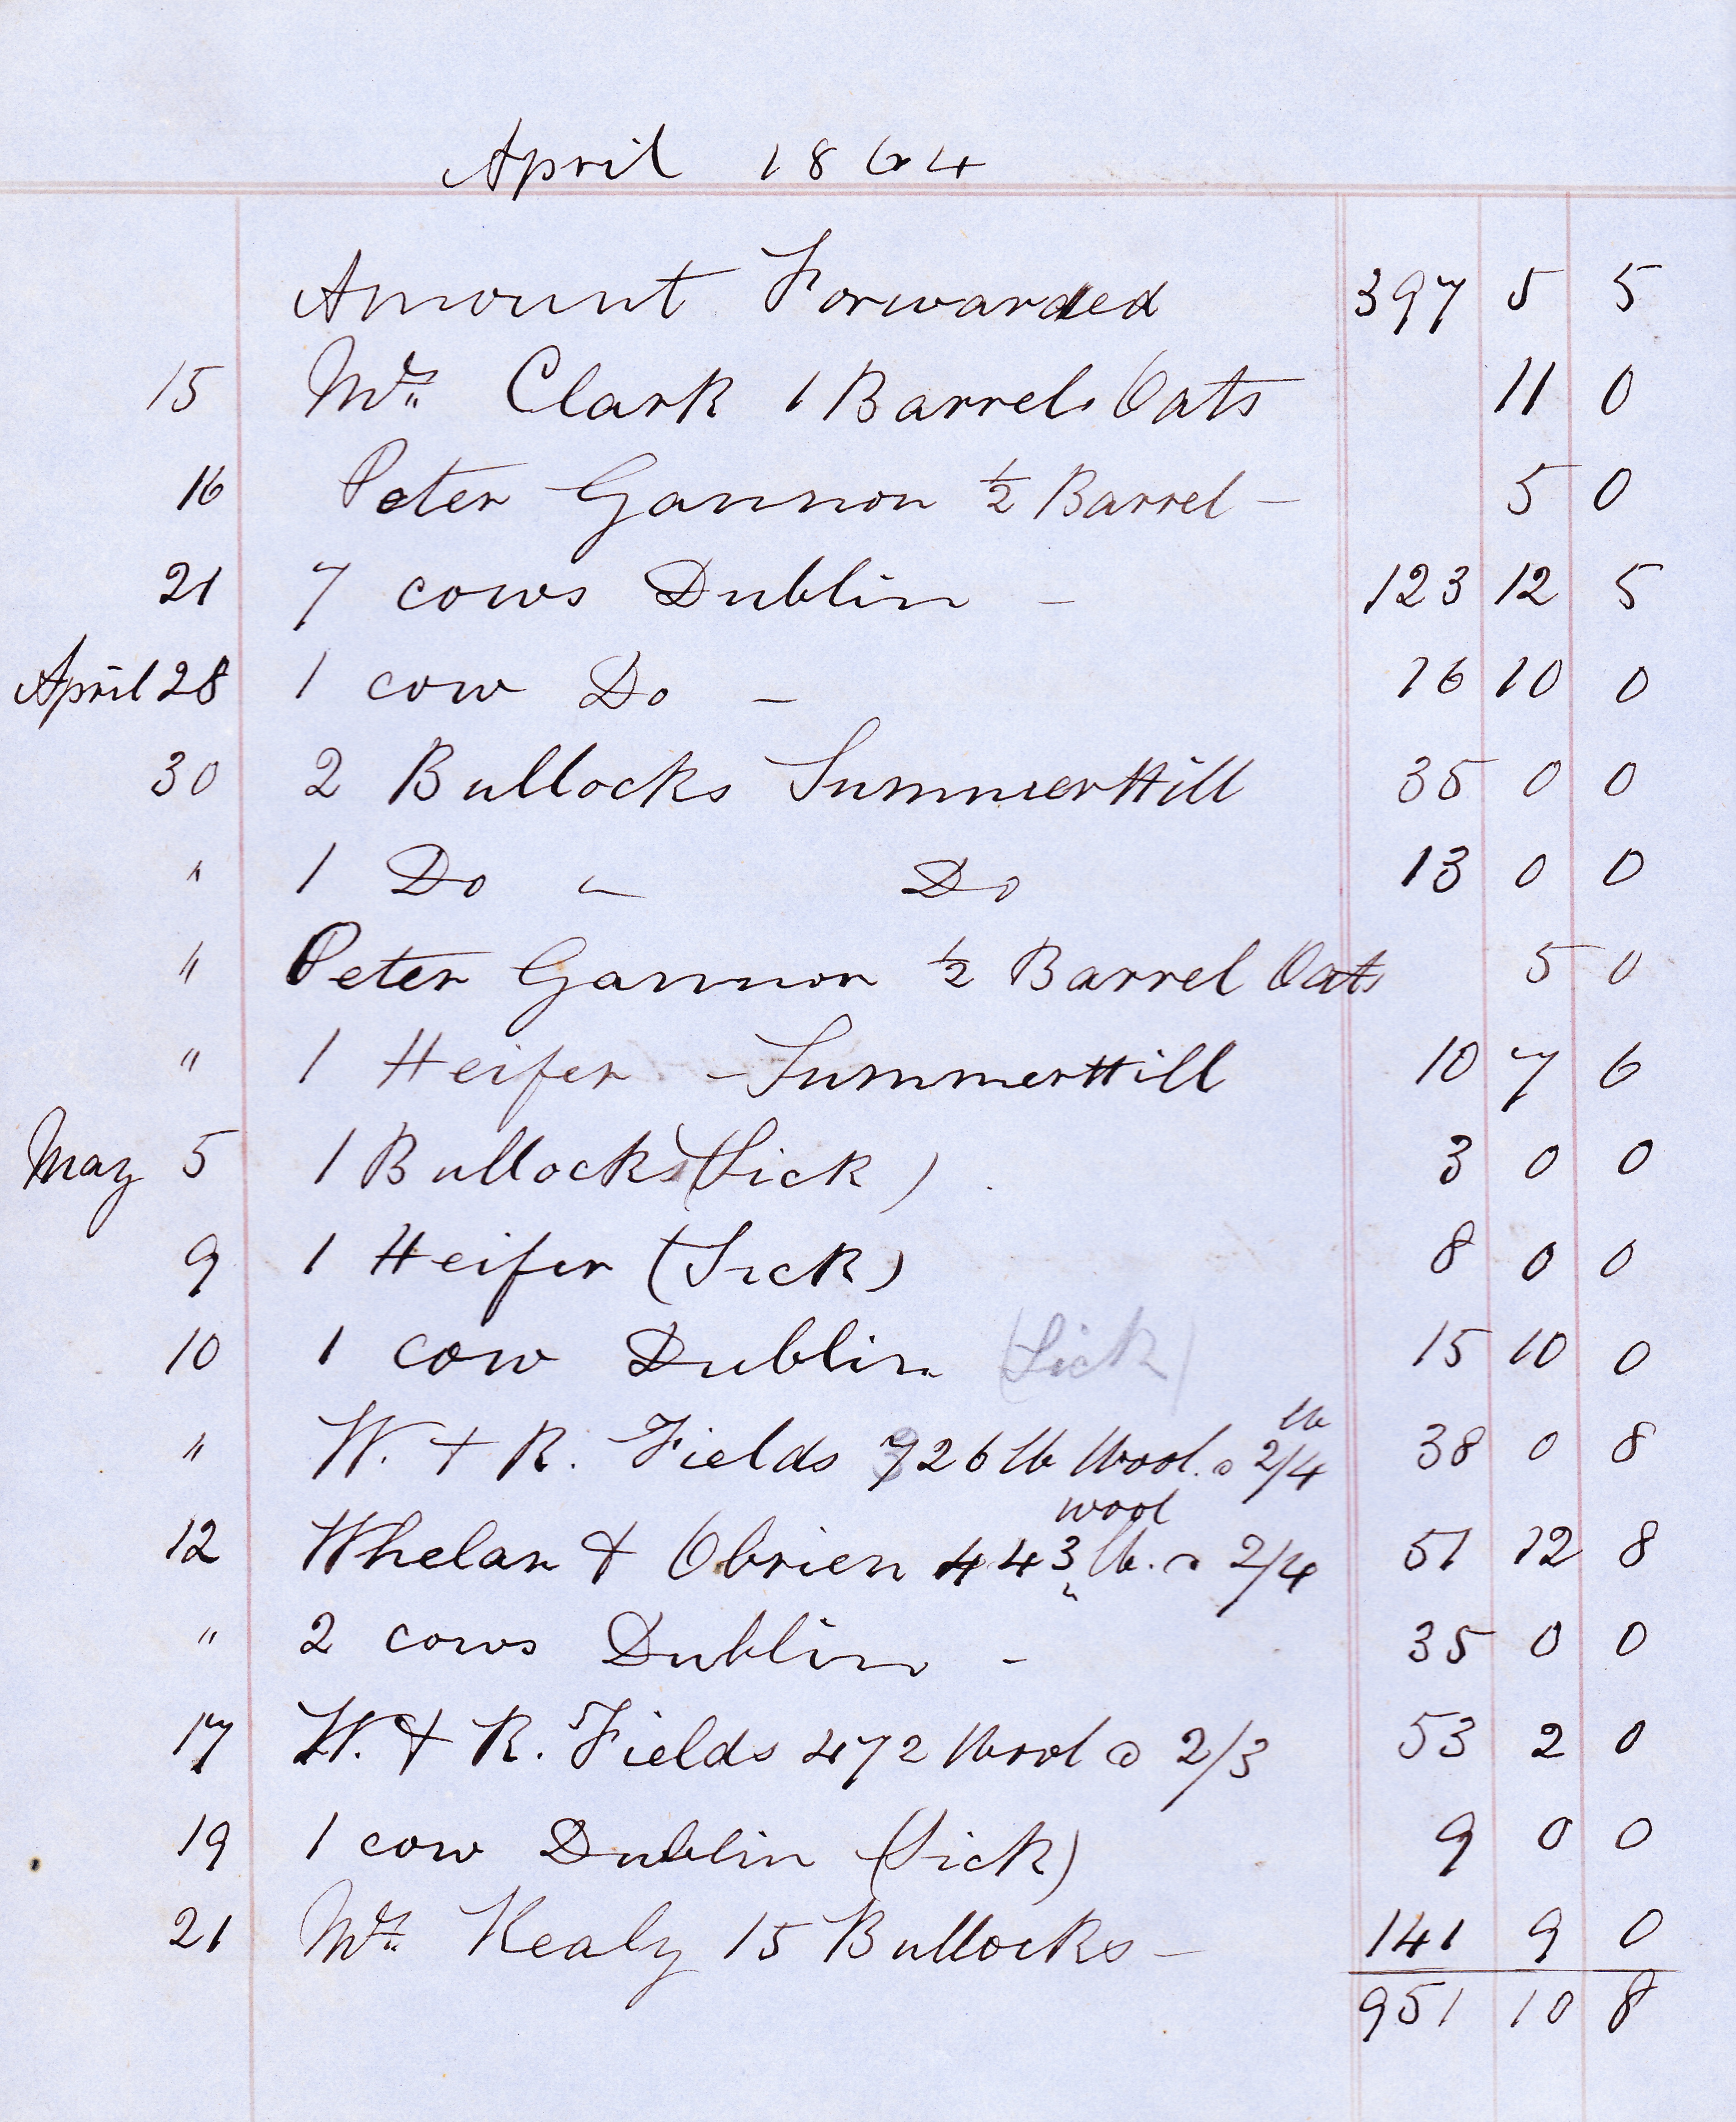 April 1864
Amount Forwarded 397 5 5
15 Mrs Clark 1 Barrel Oats 11 0
16 Peter Gannon ½ Barrel — 5 0
21 7 cows Dublin — 123 12 5
April 28 1 cow Do — 16 10 0
30 2 Bullocks SummerHill 35 0 0
" 1 Do " Do 13 0 0
" Peter Gannon ½ Barrel Oats 5 0
" 1 Heifer — SummerHill 10 7 6
May 5 1 Bullocks (Sick) 3 0 0
9 1 Heifer (Sick) 8 0 0
10 1 cow Dublin (Sick) 15 10 0
lb
" W. + R. Fields 326 lb Wool @ 2/4 38 0 8
wool
12 Whelan & Obrien 443 lb. @ 2/4 51 12 8
" 2 cows Dublin - 35 0 0
17 W. & R. Fields 472 Wool @ 2/3 53 2 0
19 1 cow Dublin (Sick) 9 0 0
21 Mr. Kealy 15 Bullocks — 141 9 0
951 10 8